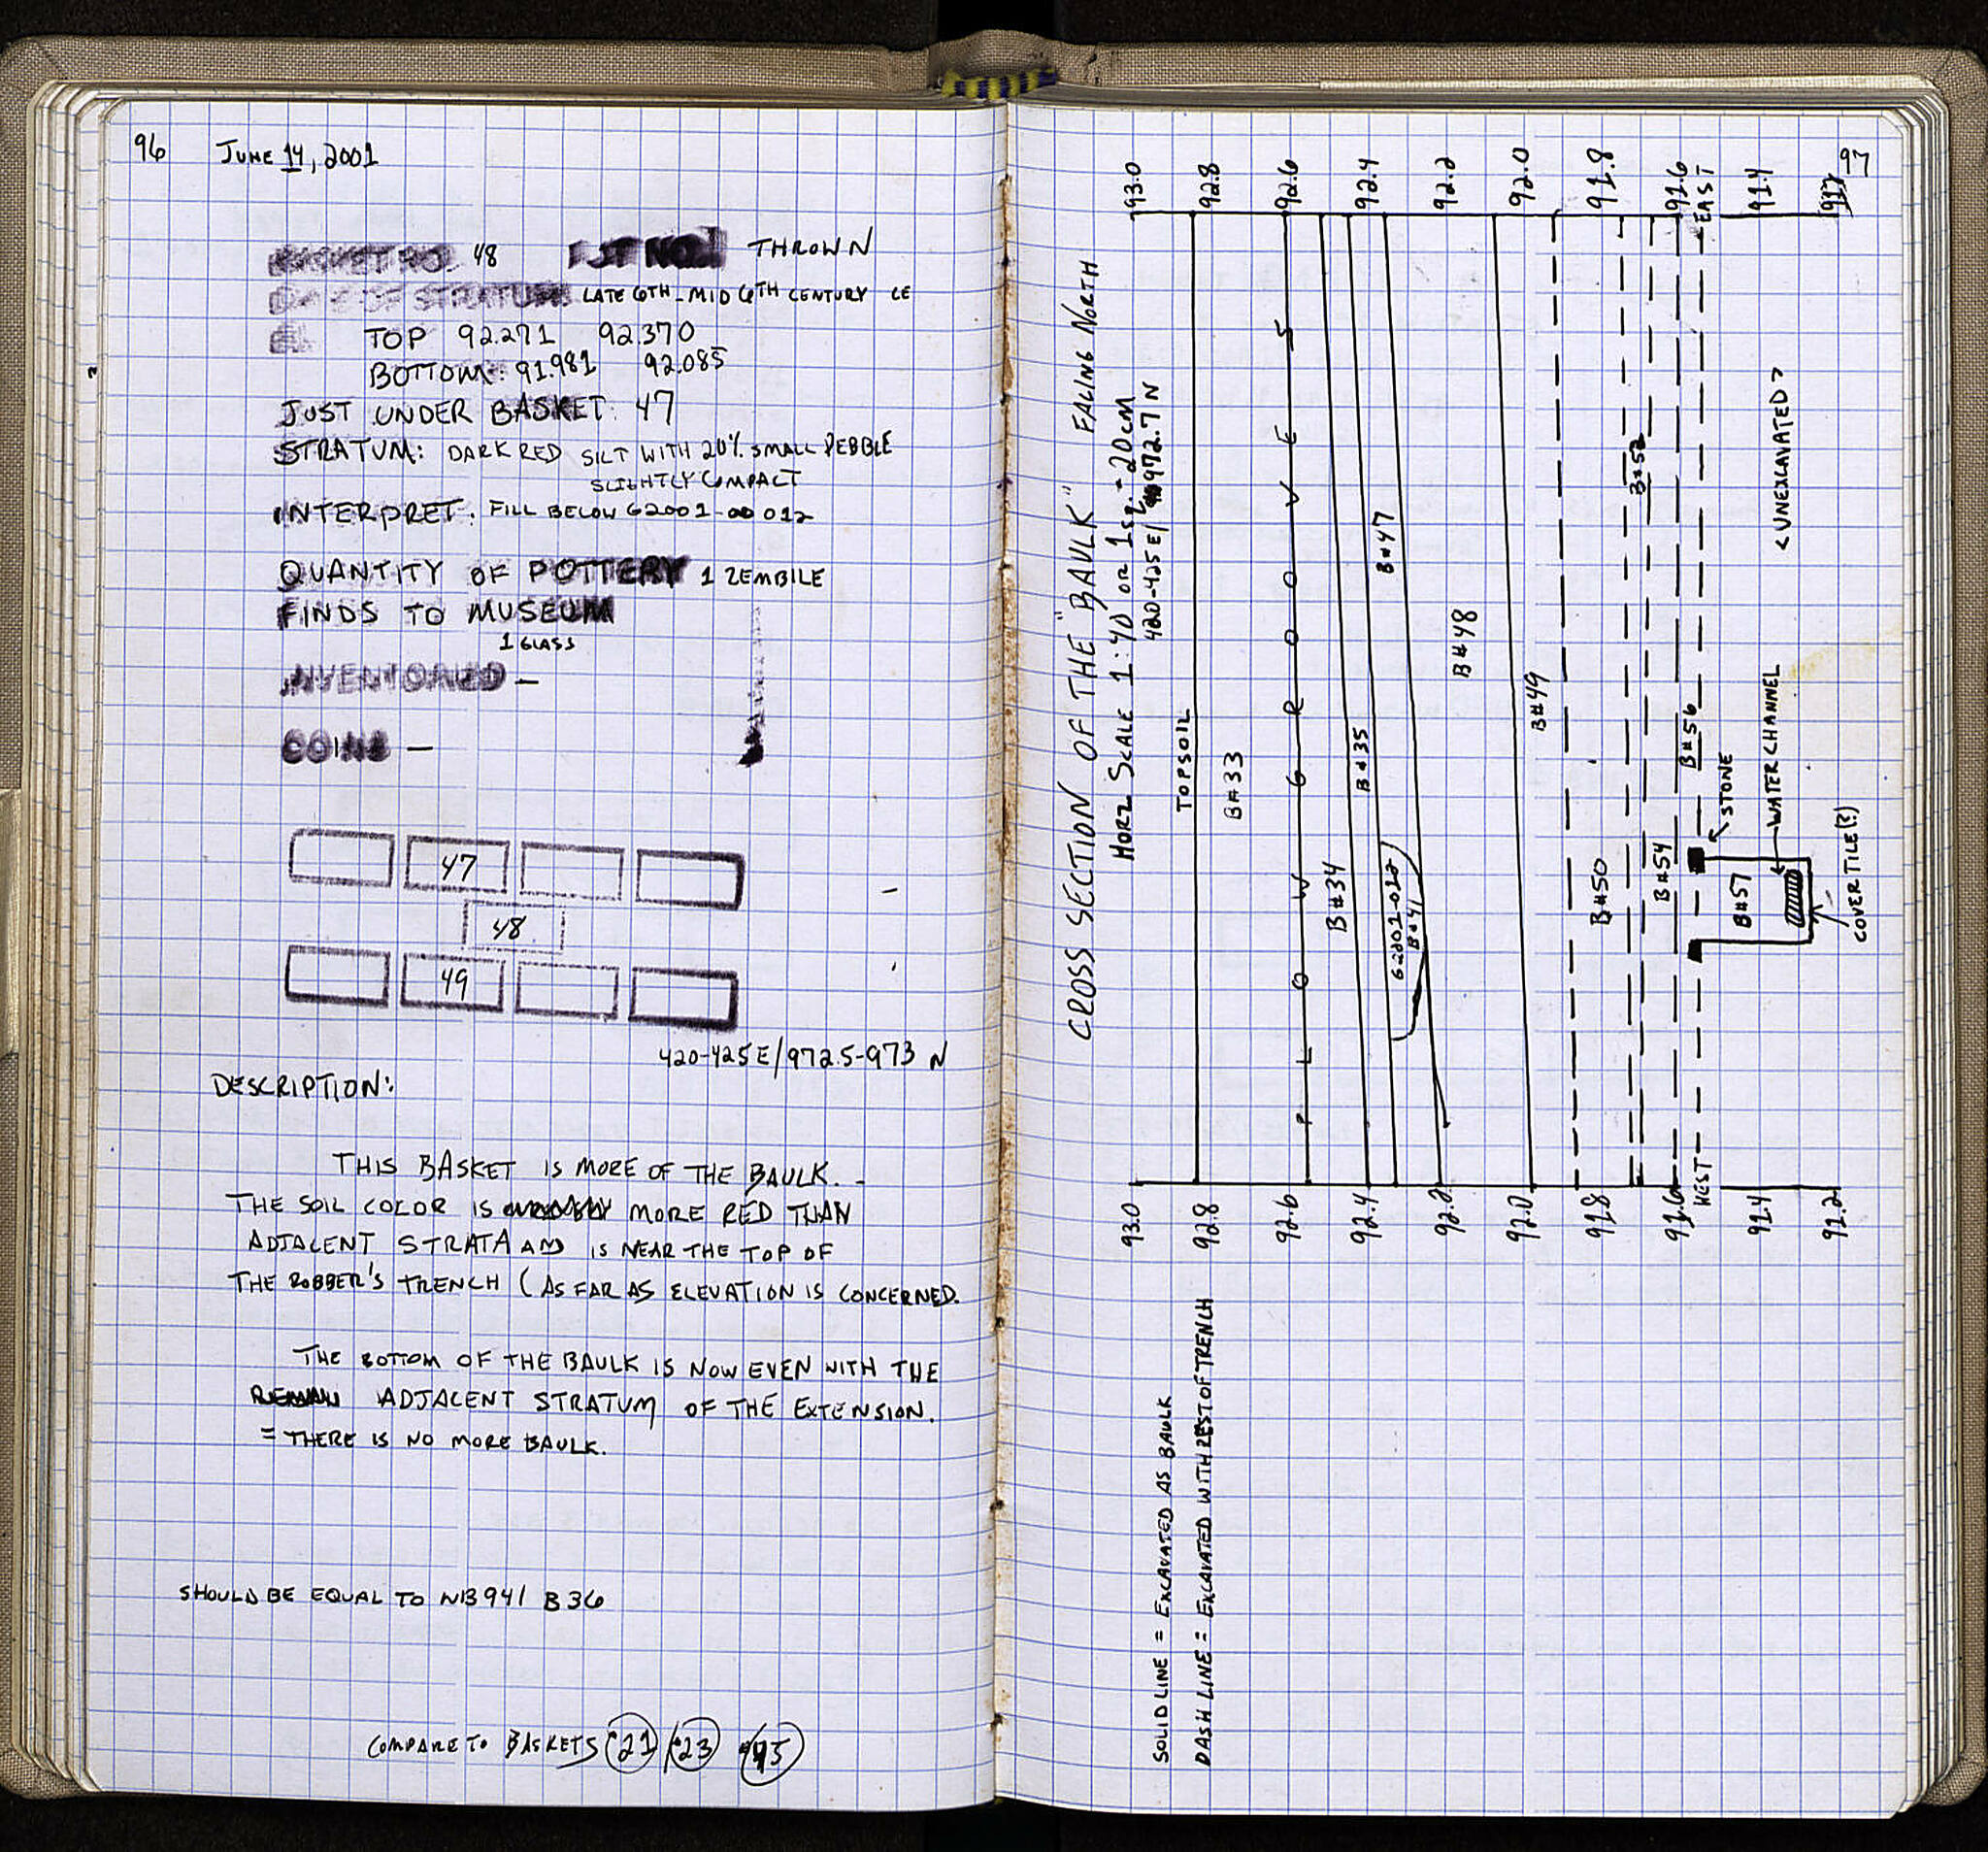 96 JUNE 14, 2001
BASKET NO. 48 LOT NO. THROWN
DATE OF STRATUM LATE 6TH - MID 6TH CENTURY CE
EL. TOP 92.271 92.370
BOTTOM: 91.981 92.085
JUST UNDER BASKET: 47
STRATUM: DARK RED SILT WITH 20% SMALL PEBBLE
SLIGHTLY COMPACT
INTERPRET: FILL BELOW G2001-012
QUANTITY OF POTTERY 1 ZEMBILE
FINDS TO MUSEUM
1 GLASS
INVENTORIED -
COINS -
47
48
49
420-425E/972.5-973 N
DESCRIPTION:
THIS BASKET IS MORE OF THE BAULK. -
THE SOIL COLOR IS MORE RED THAN
ADJACENT STRATA AND IS NEAR THE TOP OF
THE ROBBER'S TRENCH (AS FAR AS ELEVATION IS CONCERNED.
THE BOTTOM OF THE BAULK IS NOW EVEN WITH THE
ADJACENT STRATUM OF THE EXTENSION.
= THERE IS NO MORE BAULK.
SHOULD BE EQUAL TO NB 941 B 36
COMPARE TO BASKETS 21 / 23 45
97
CROSS SECTION OF THE "BAULK" FACING NORTH
HORZ SCALE 1:40 OR 1sq. = 20cm
420-425E/972.7 N
93.0
92.8
92.6
92.4
92.2
92.0
91.8
91.6
EAST
91.4
91.2
TOPSOIL
B#33
PLOW GROOVES
B#34
B#35
G2001-012
B#41
B#47
B#48
B#49
B#50
B#52
B#54
B#56
STONE
B#57
WATER CHANNEL
COVER TILE(?)
<UNEXCAVATED>
93.0
92.8
92.6
92.4
92.2
92.0
91.8
91.6
WEST
91.4
91.2
SOLID LINE = EXCAVATED AS BAULK
DASH LINE = EXCAVATED WITH REST OF TRENCH